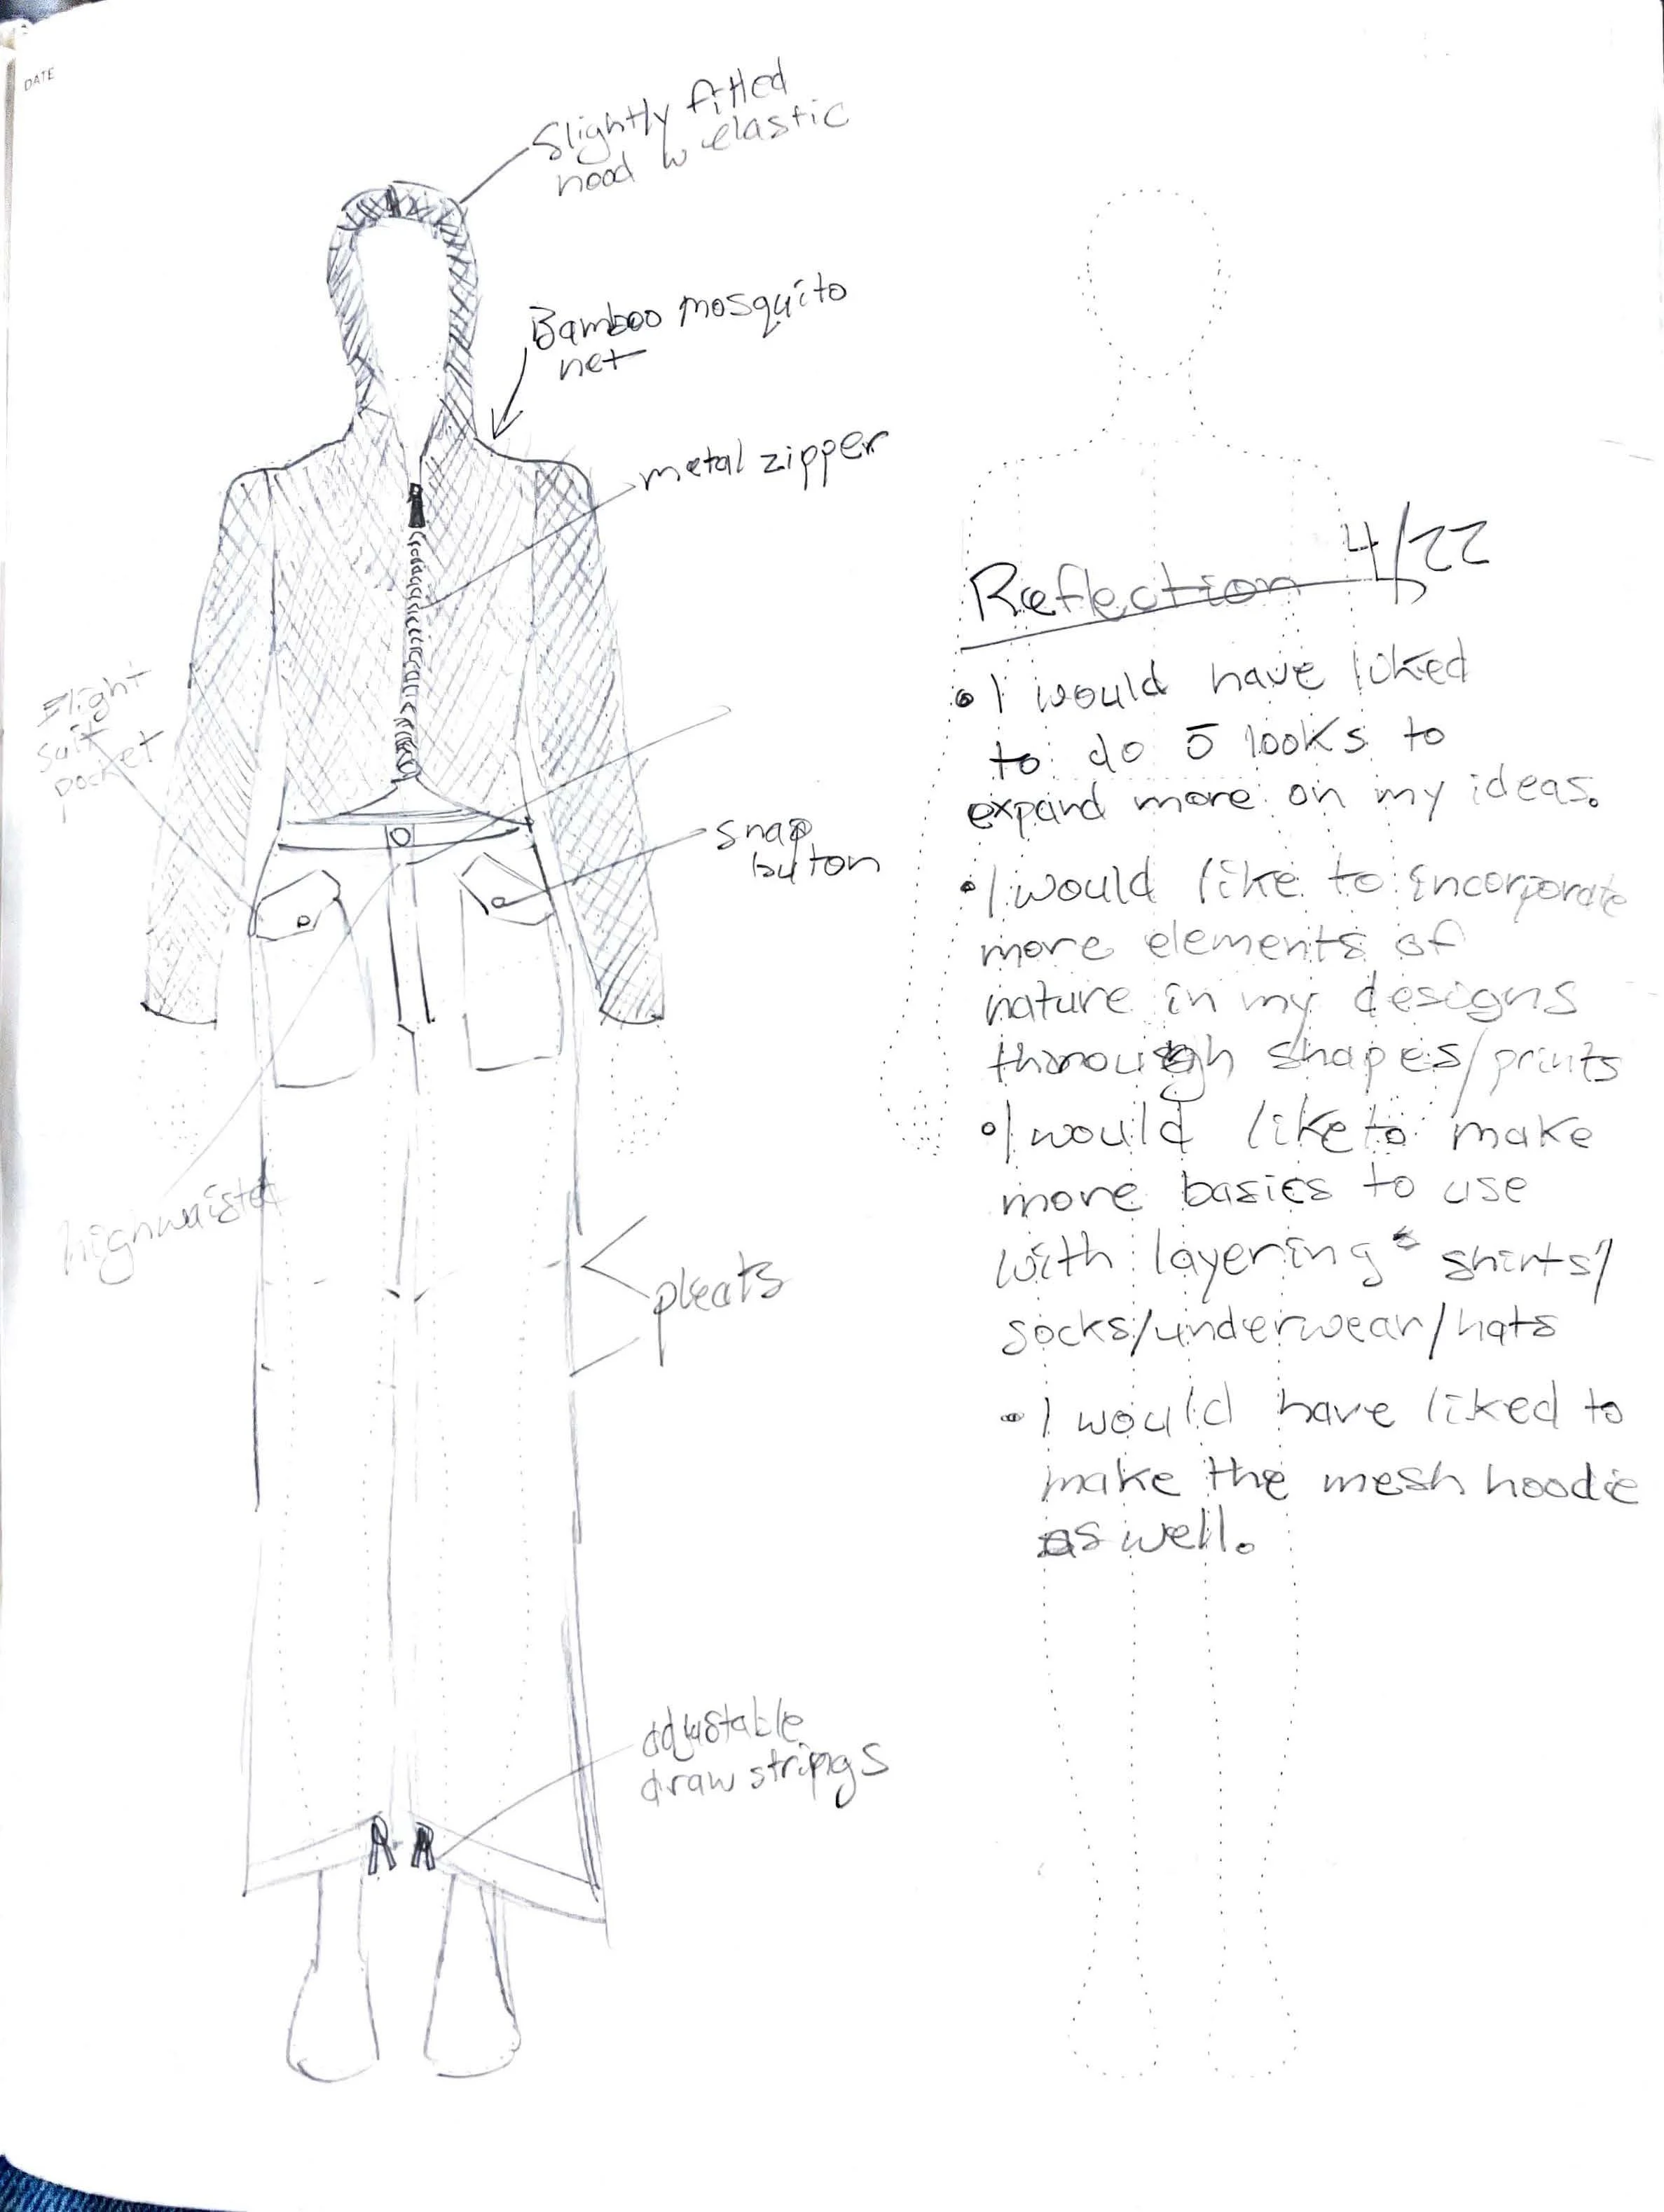 DATE
Slightly fitted
hood w elastic
Bamboo mosquito
net
metal zipper
Flight
suit
pocket
snap
button
highwaisted
pleats
adjustable
draw strings
Reflection 4/22
• I would have liked
to do 5 looks to
expand more on my ideas.
• I would like to incorporate
more elements of
nature in my designs
through shapes/prints
• I would like to make
more basics to use
with layering shirts/
socks/underwear/hats
• I would have liked to
make the mesh hoodie
as well.